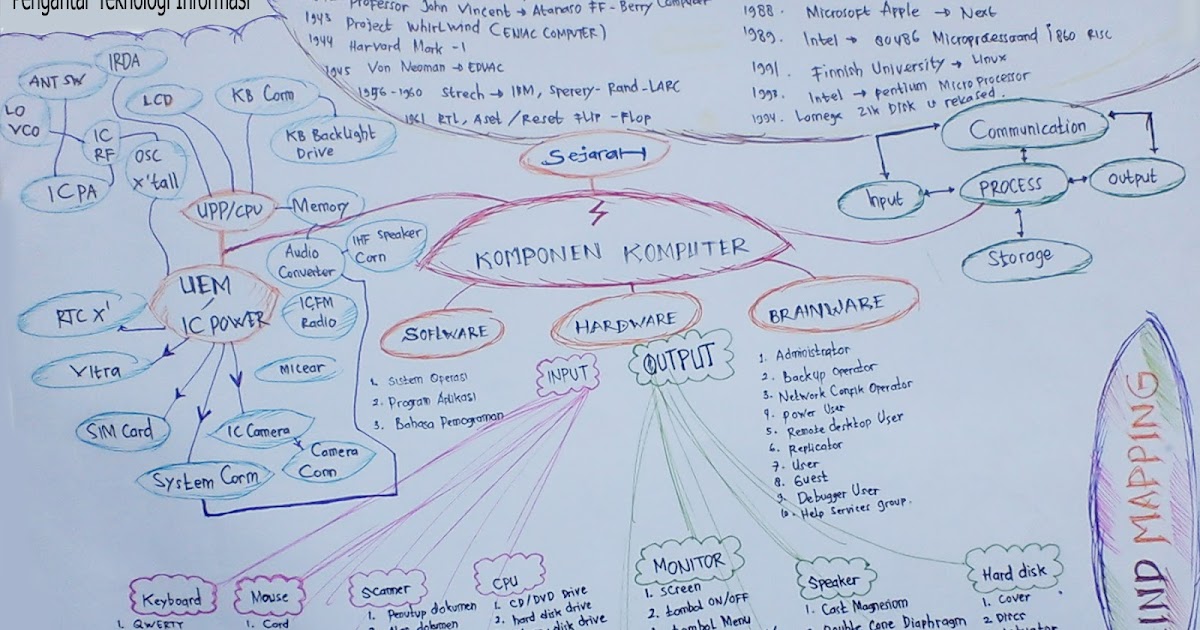 Pengantar Teknologi Informasi
Professor John Vincent → Atanaso FF - Berry Computer
1943 Project Whirlwind (ENIAC COMPUTER)
1944 Harvard Mark - 1
1945 Von Neoman → EDVAC
1956 - 1960 Strech → IBM, Sperery - Rand - LARC
1961 RTL, Aset / Reset FLIP - Flop
1988. Microsoft Apple → Next
1989. Intel → 80486 Microprosessorand i860 RISC
1991. Finnish University → Linux
1993. Intel → pentium Micro Processor
1994. Lomega ZIK DISK is released.
ANT SW
IRDA
LO
VCO
LCD
KB Corm
IC
RF
OSC
X'tall
KB Backlight
Drive
IC PA
UPP/CPU
Memory
Audio
Converter
IHF Speaker
Corn
UEM
/
IC POWER
IC,FM
Radio
RTC X'
Vltra
Micear
SIM Card
IC Camera
Camera
Conn
System Corm
Sejarah
KOMPONEN KOMPUTER
Communication
Input
PROCESS
Output
Storage
SOFLWARE
HARDWARE
BRAINWARE
1. Sistem Operasi
2. Program Aplikasi
3. Bahasa Pemograman
INPUT
OUTPUT
1. Administrator
2. Backup Operator
3. Network Confik Operator
4. Power User
5. Remote desktop User
6. Replicator
7. User
8. Guest
9. Debugger User
10. Help Services group.
MIND MAPPING
Keyboard
1. QWERTY
Mouse
1. Cord
Scanner
1. Penutup dokumen
CPU
1. CD/DVD Drive
2. hard disk drive
disk drive
MONITOR
1. Screen
2. tombol ON/OFF
3. tombol Menu
Speaker
1. Cast Magnesiom
2. Double Cone Diaphragm
Hard disk
1. Cover
2. Discs